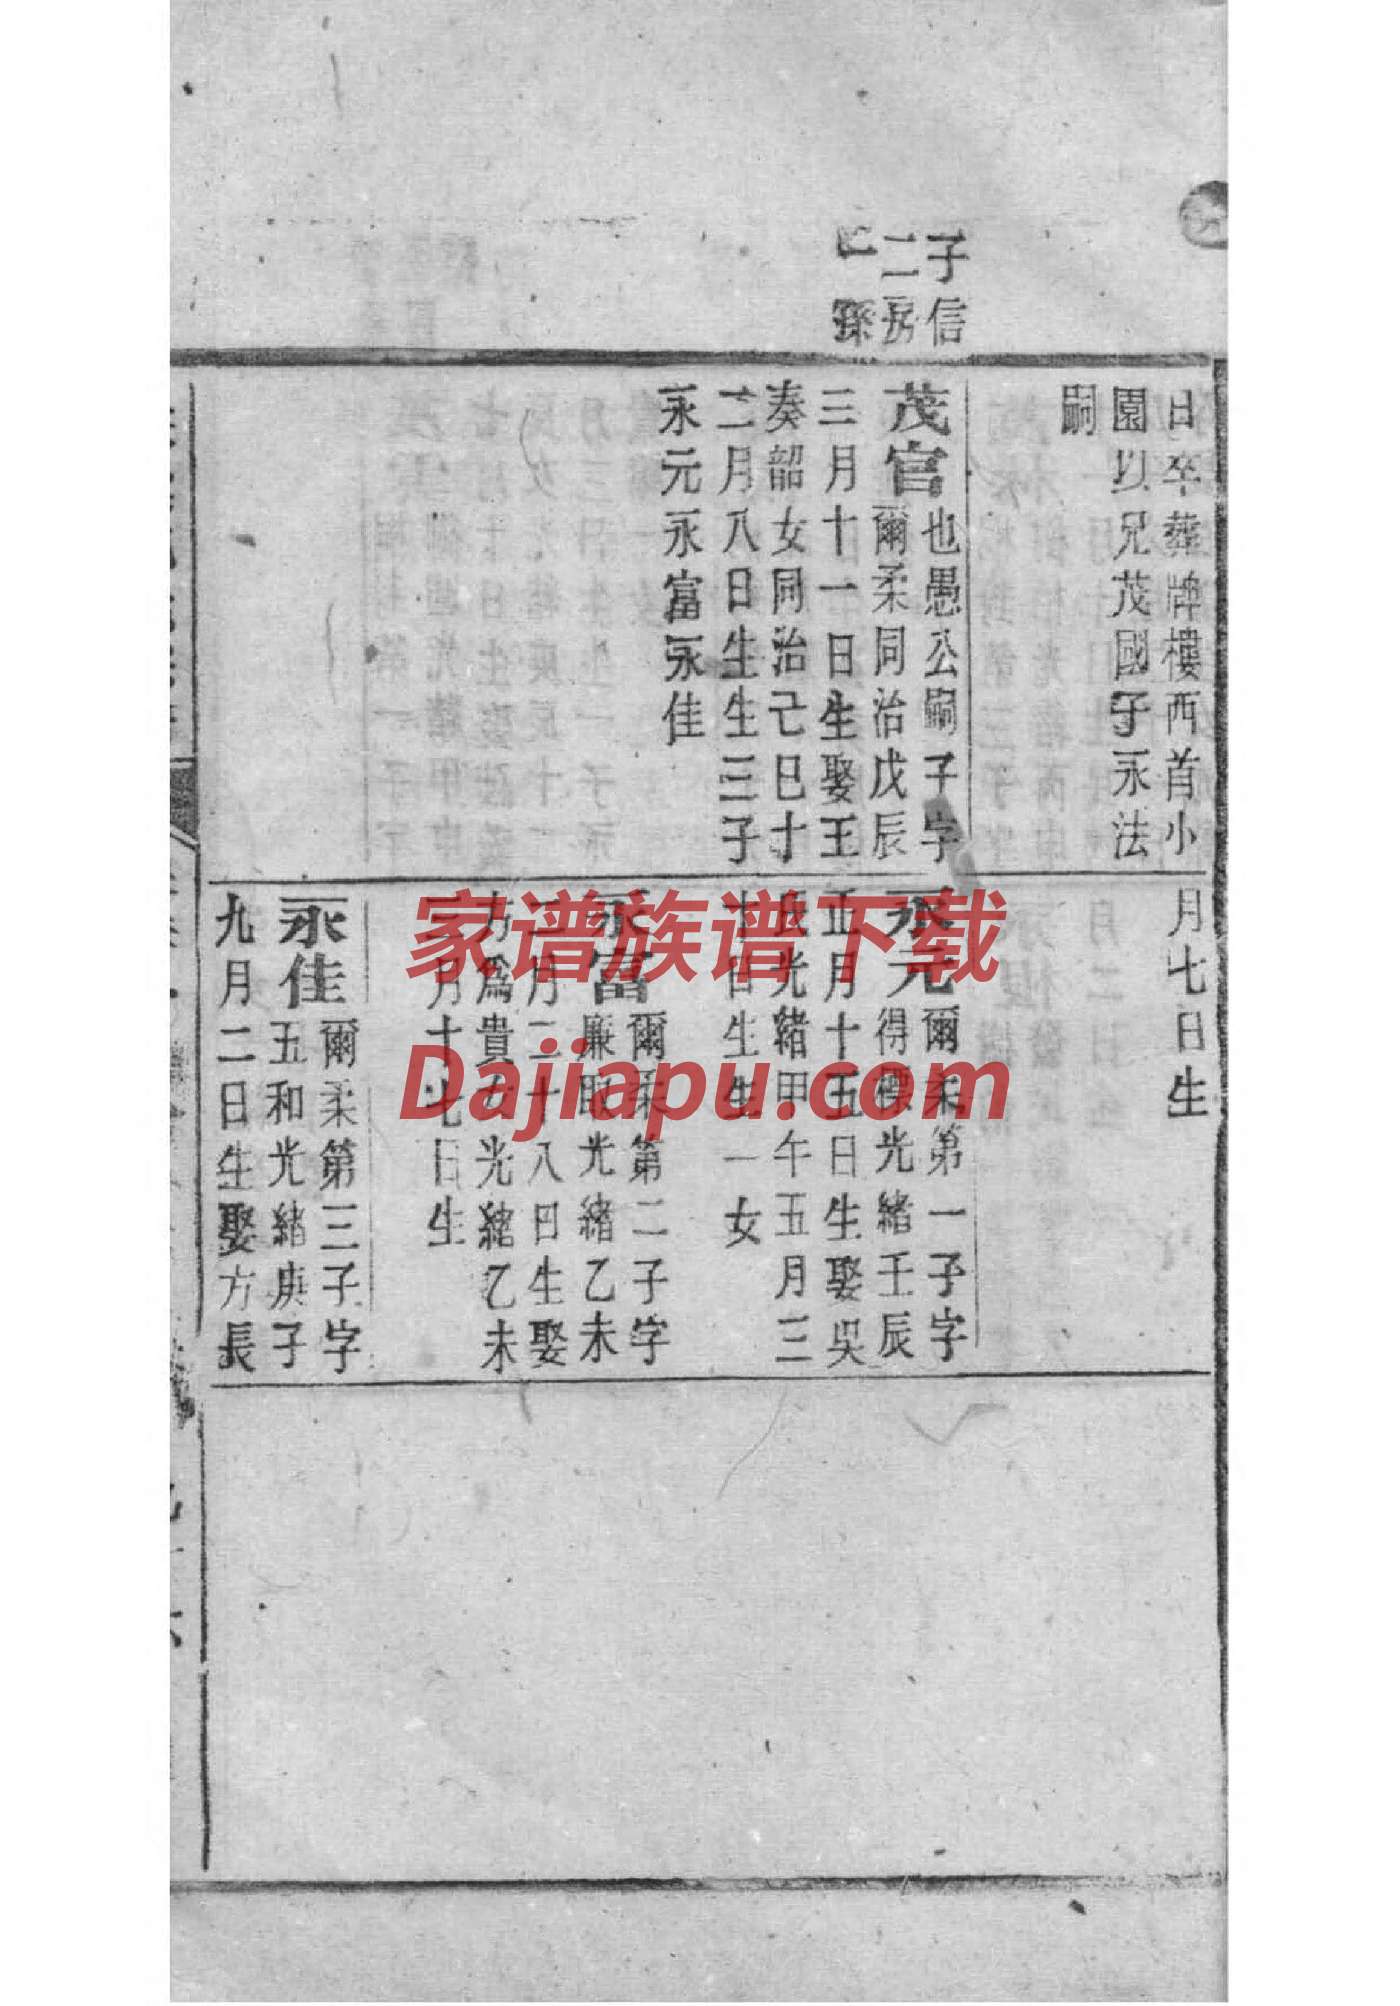 子信
二房
巳孫
日卒葬牌樓西首小
園以兄茂國子永法
嗣
茂官也愚公嗣子字
爾柔同治戊辰
三月十一日生娶王
奏韶女同治己巳十
二月八日生生三子
永元永富永佳
月七日生
永元爾柔第一子字
得標光緒壬辰
正月十五日生娶吳
光緒甲午五月三
十日生生一女
永富爾柔第二子字
廉取光緒乙未
二月二十八日生娶
方為貴女光緒乙未
月十九日生
永佳爾柔第三子字
五和光緒庚子
九月二日生娶方長
家谱族谱下载
Dajiapu.com